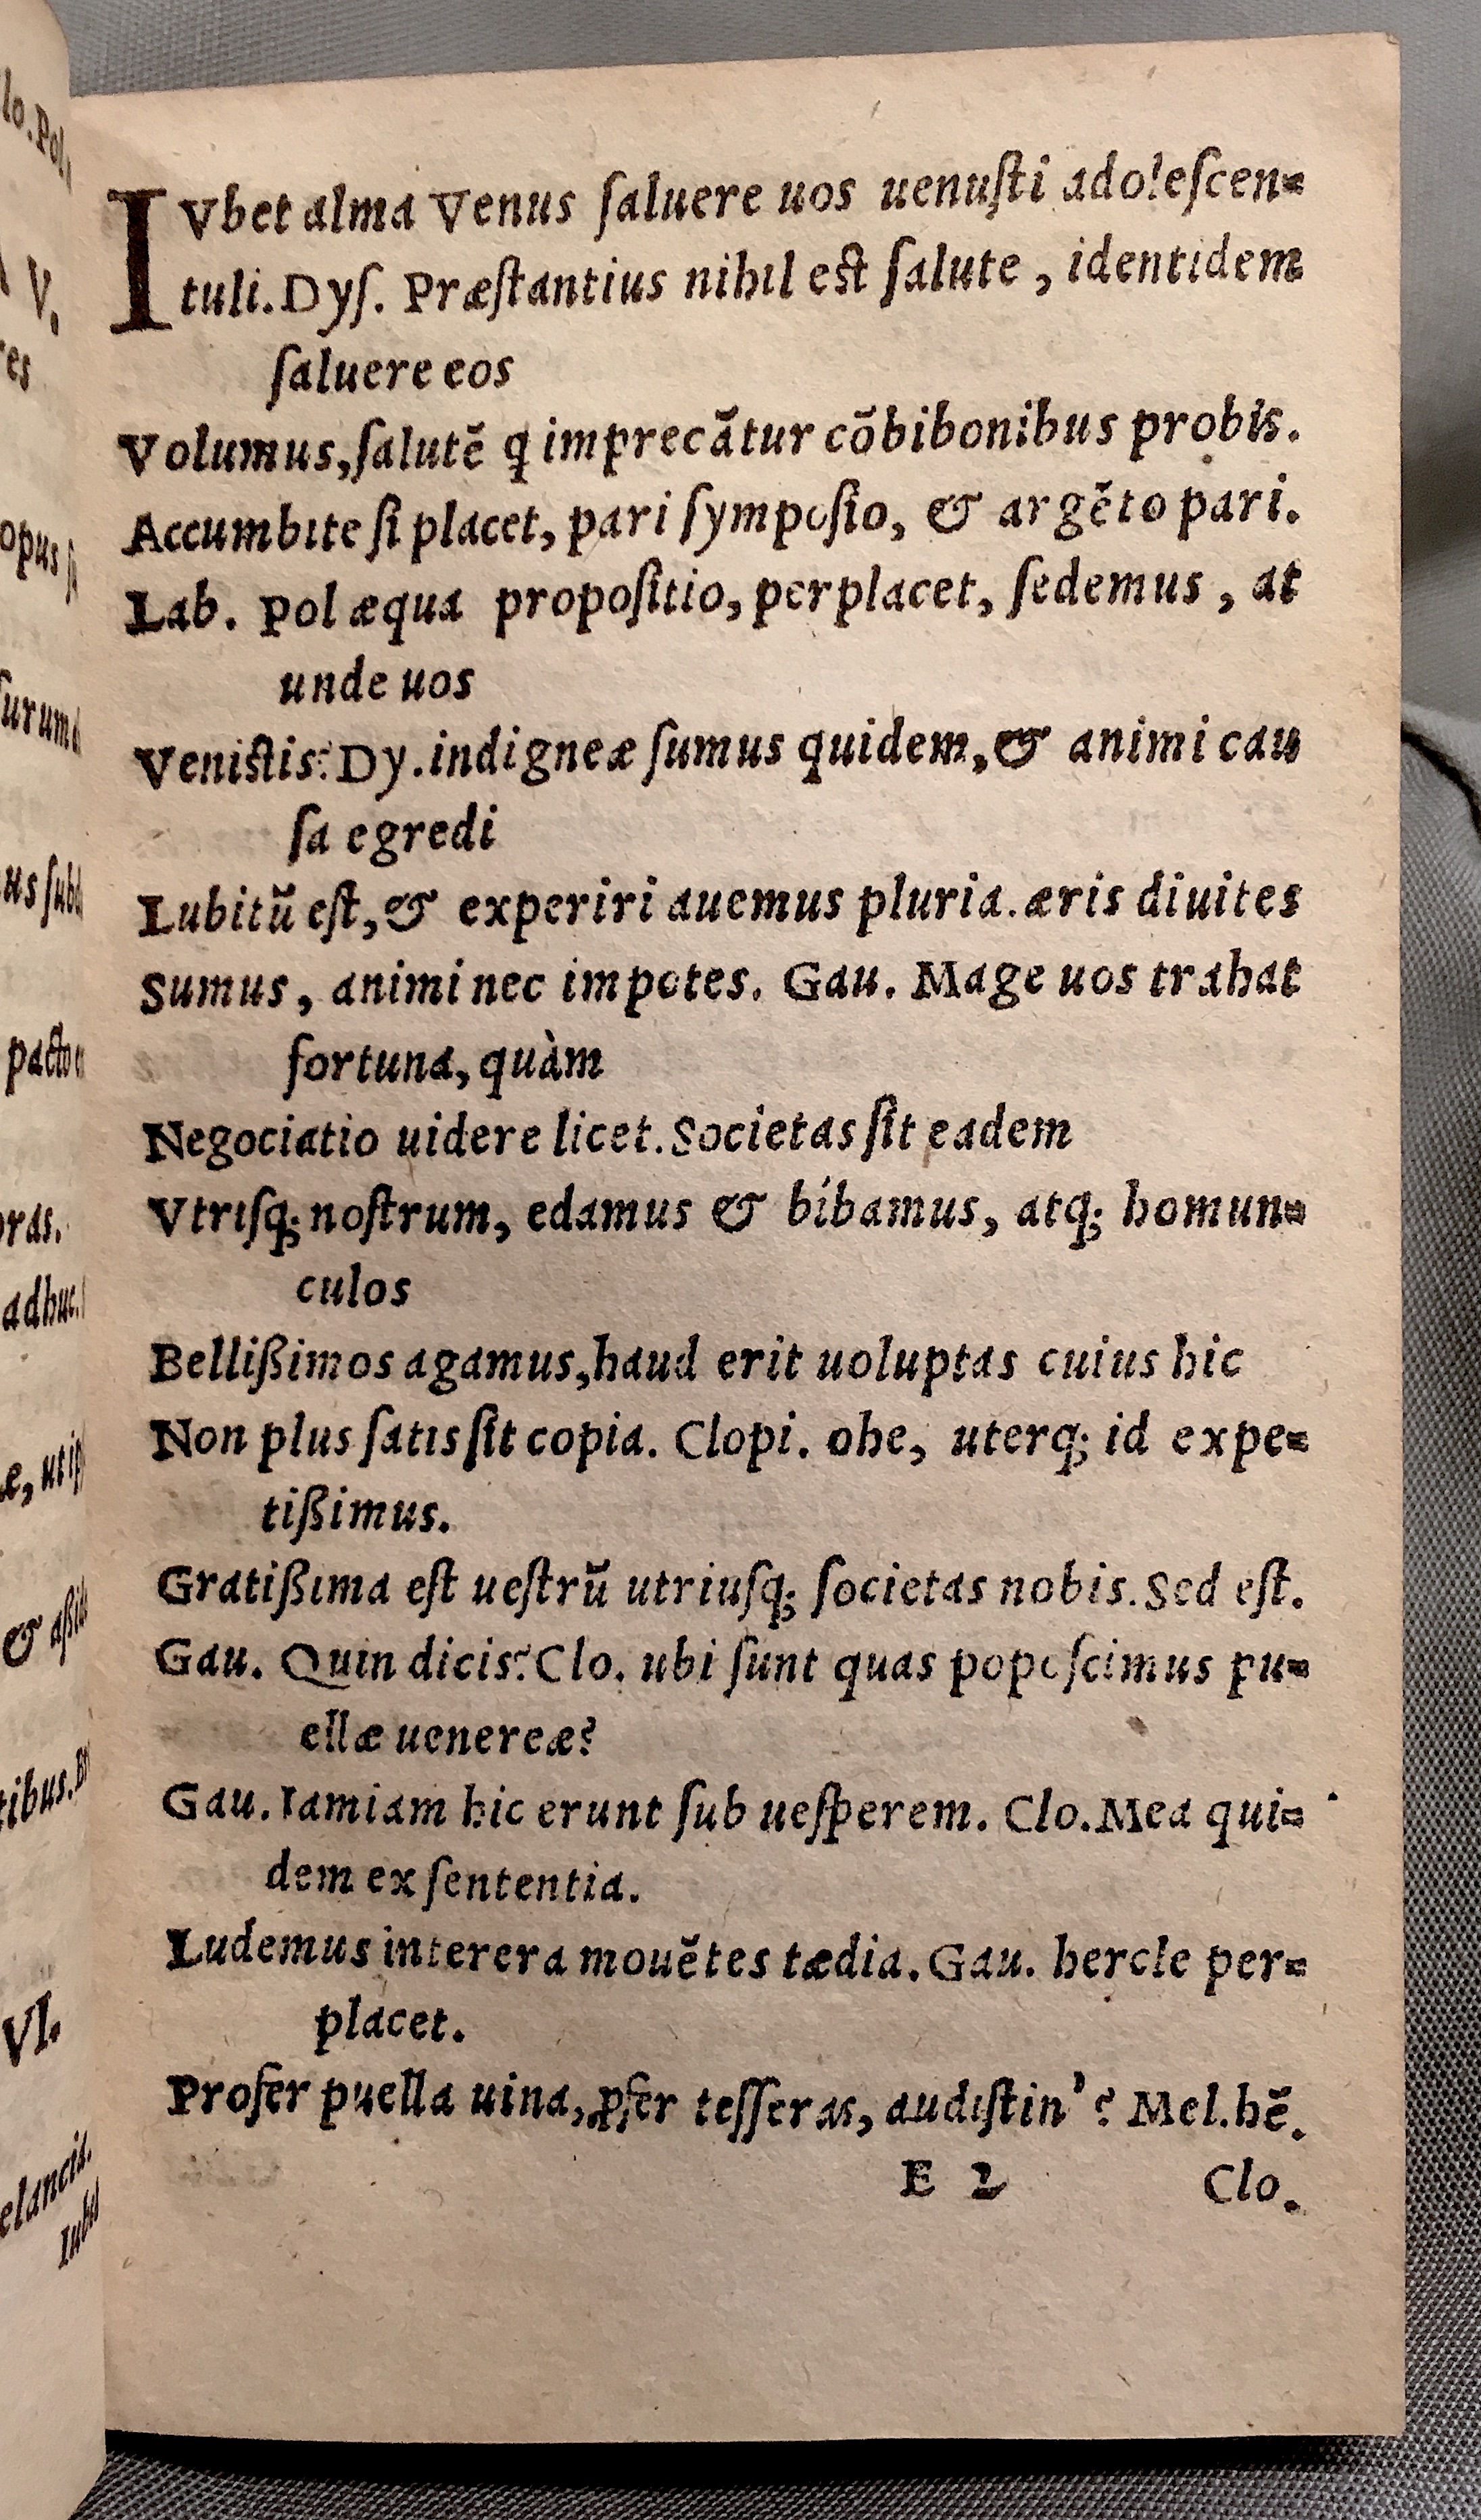 IVbet alma Venus ſaluere uos uenuſti adoleſcen=
tuli. Dyſ. Præſtantius nihil eſt ſalute, identidem
ſaluere eos
Volumus, ſalutē q imprecātur cōbibonibus probis.
Accumbite ſi placet, pari ſympoſio, & argēto pari.
Lab. Pol æqua propoſitio, perplacet, ſedemus, at
unde uos
Veniſtis? Dy. indigneæ ſumus quidem, & animi cau
ſa egredi
Lubitū eſt, & experiri auemus pluria. æris diuites
Sumus, animi nec impotes. Gau. Mage uos trahat
fortuna, quàm
Negociatio uidere licet. Societas ſit eadem
Vtriſq; noſtrum, edamus & bibamus, atq; homun=
culos
Bellißimos agamus, haud erit uoluptas cuius hic
Non plus ſatis ſit copia. Clopi. ohe, uterq; id expe=
tißimus.
Gratißima eſt ueſtrū utriuſq; ſocietas nobis. Sed eſt.
Gau. Quin dicis? Clo. ubi ſunt quas popoſcimus pu=
ellæ uenereæ?
Gau. Iamiam hic erunt ſub ueſperem. Clo. Mea qui=
dem ex ſententia.
Ludemus interera mouētes tædia. Gau. hercle per=
placet.
Profer puella uina, ꝓfer teſſeras, audiſtin'? Mel. hē.
E 2 Clo.